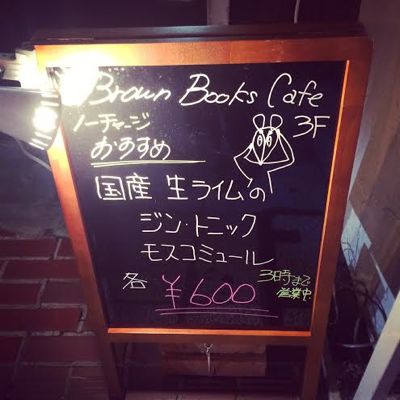 Brown Books Cafe
ノーチャージ
3F
おすすめ
国産 生ライムの
ジン・トニック
モスコミュール
各 ¥600
3時まで
営業中